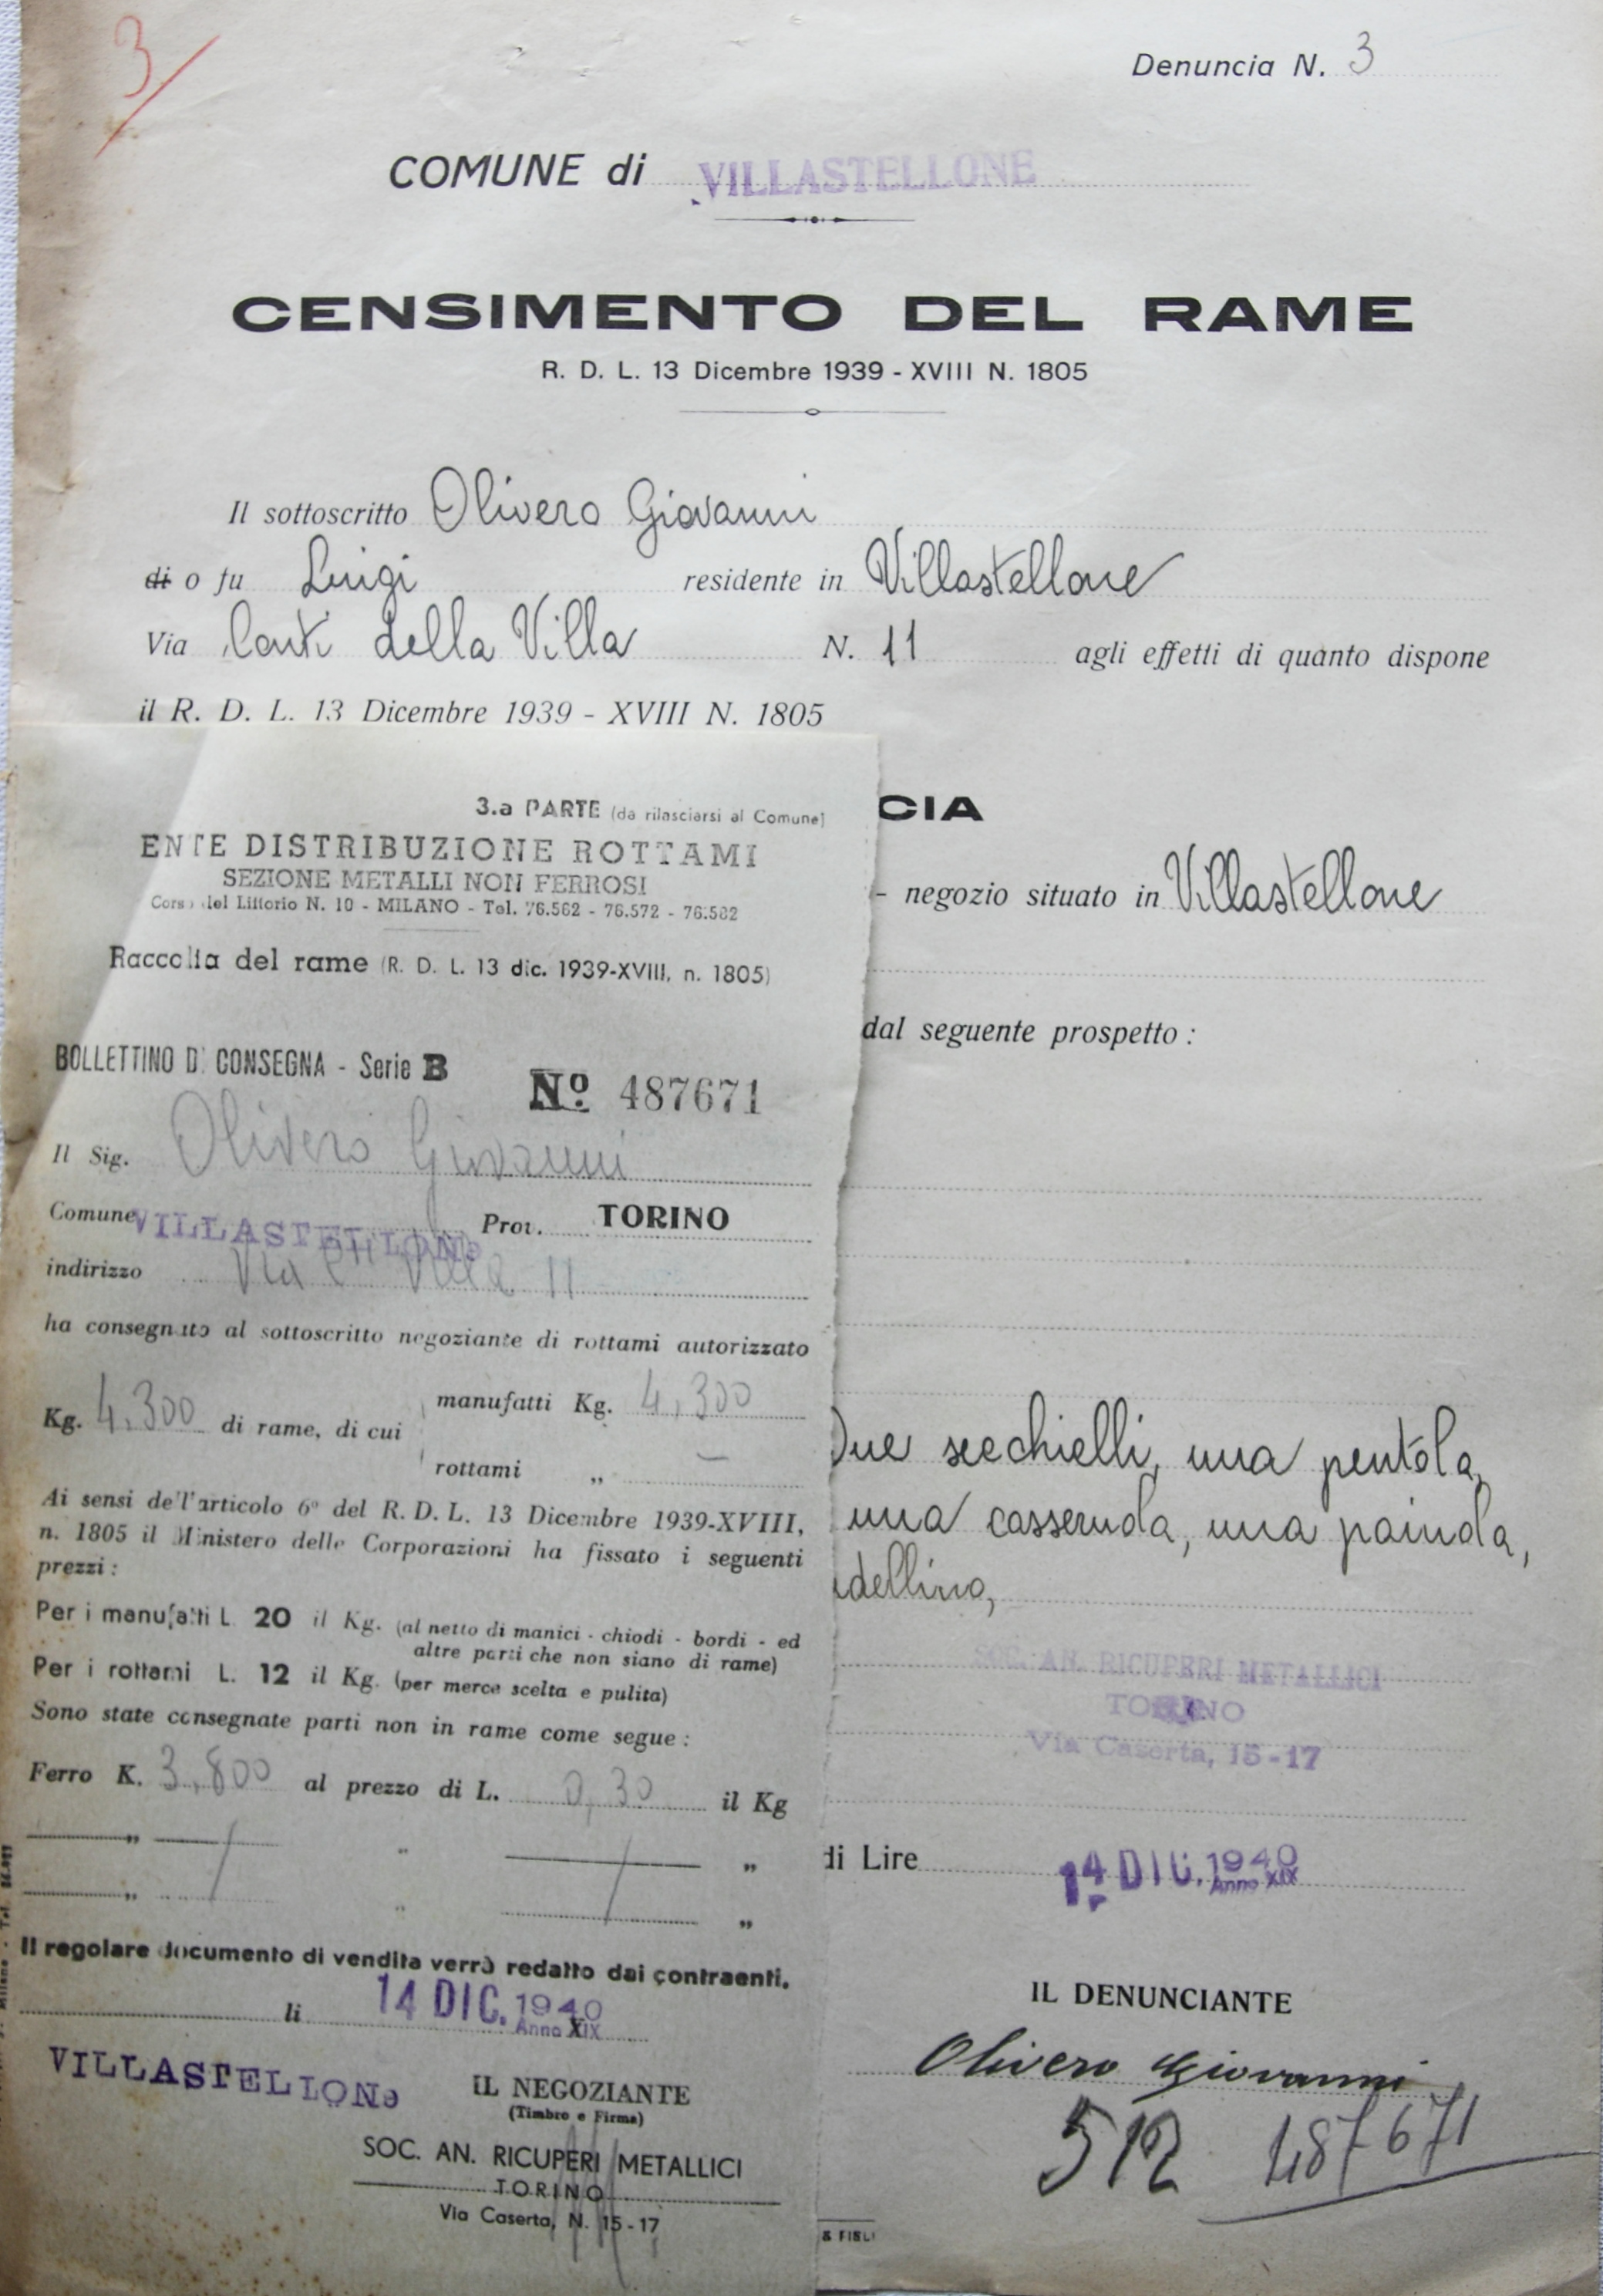 3
Denuncia N. 3
COMUNE di VILLASTELLONE
CENSIMENTO DEL RAME
R. D. L. 13 Dicembre 1939 - XVIII N. 1805
Il sottoscritto Olivero Giovanni
di o fu Luigi residente in Villastellone
Via Conti della Villa N. 11 agli effetti di quanto dispone
il R. D. L. 13 Dicembre 1939 - XVIII N. 1805
CIA
- negozio situato in Villastellone
dal seguente prospetto :
Due secchielli, una pentola,
una casseruola, una paiuola,
dellino,
SOC. AN. RICUPERI METALLICI
TORINO
Via Caserta, 15-17
di Lire 14 DIC. 1940
Anno XIX
IL DENUNCIANTE
Olivero Giovanni
512 487671
& FIGLI
3.a PARTE (da rilasciarsi al Comune)
ENTE DISTRIBUZIONE ROTTAMI
SEZIONE METALLI NON FERROSI
Corso del Littorio N. 10 - MILANO - Tel. 76.562 - 76.572 - 76.582
Raccolta del rame (R. D. L. 13 dic. 1939-XVIII, n. 1805)
BOLLETTINO DI CONSEGNA - Serie B
Nº 487671
Il Sig. Olivero Giovanni
Comune VILLASTELLONE Prov. TORINO
indirizzo Via Villa 11
ha consegnato al sottoscritto negoziante di rottami autorizzato
Kg. 4,300 di rame, di cui
manufatti Kg. 4,300
rottami „ —
Ai sensi de'l'articolo 6º del R. D. L. 13 Dicembre 1939-XVIII,
n. 1805 il Ministero delle Corporazioni ha fissato i seguenti
prezzi :
Per i manufatti L. 20 il Kg. (al netto di manici - chiodi - bordi - ed
altre parti che non siano di rame)
Per i rottami L. 12 il Kg. (per merce scelta e pulita)
Sono state consegnate parti non in rame come segue :
Ferro K. 3,800 al prezzo di L. 0,30 il Kg
„ „ „
„ „ „
Il regolare documento di vendita verrà redatto dai contraenti.
li 14 DIC. 1940
Anno XIX
VILLASTELLONE
IL NEGOZIANTE
(Timbro e Firma)
SOC. AN. RICUPERI METALLICI
TORINO
Via Caserta, N. 15-17